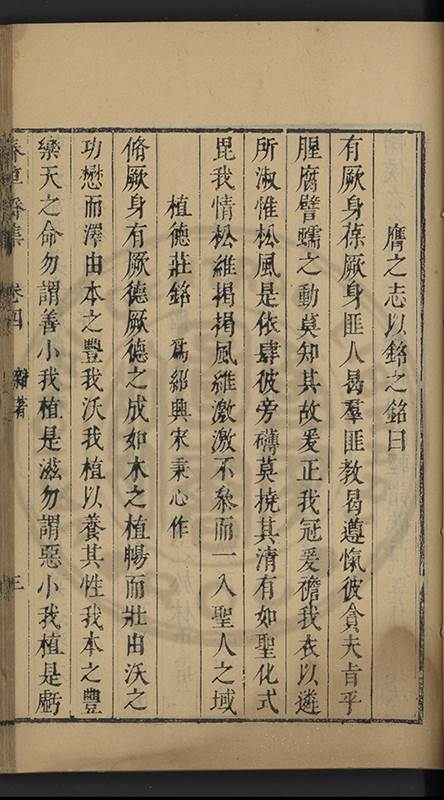 膺之志以銘之銘曰
有厥身葆厥身匪人曷羣匪教曷遵愾彼貪夫旨乎
腥腐譬蠕之動莫知其故爰正我冠爰襜我衣以遴
所淑惟松風是依肆彼旁礴莫撓其清有如聖化式
毘我情松維掲掲風維激激不叅而一入聖人之域
植德莊銘 爲紹興宋秉心作
脩厥身有厥德厥德之成如木之植暢而壯由沃之
功懋而澤由本之豐我沃我植以養其性我本之豐
樂天之命勿謂善小我植是滋勿謂惡小我植是虧
集 卷四 雜著 三